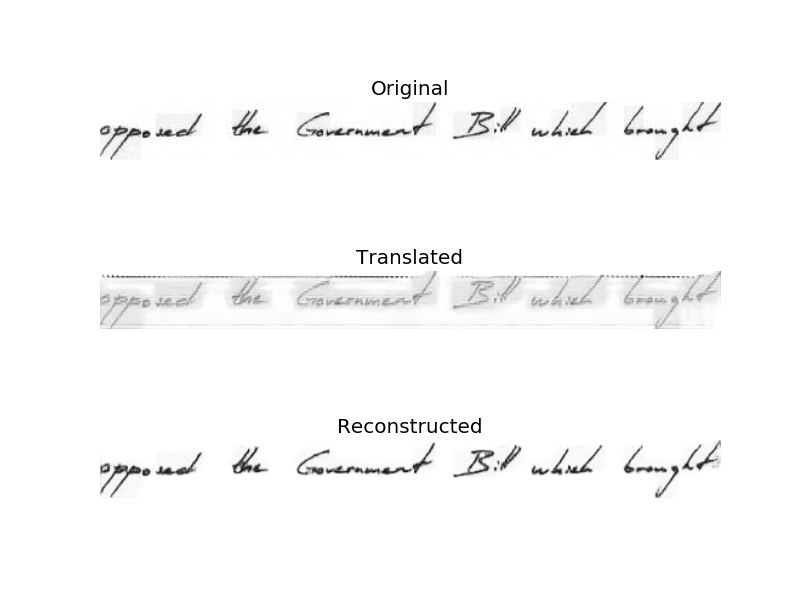 Original
opposed the Government Bill which brought
Translated
opposed the Government Bill which brought
Reconstructed
opposed the Government Bill which brought